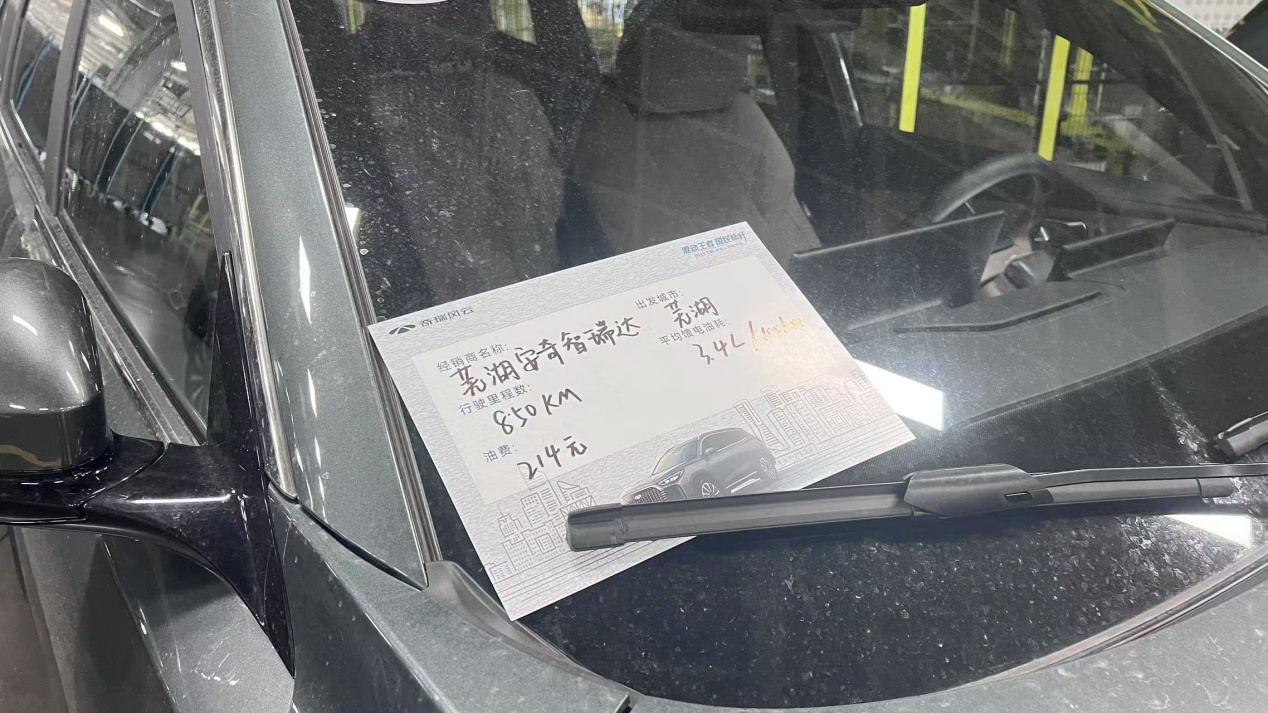 奇瑞风云
出发城市:
芜湖
经销商名称:
芜湖安奇智瑞达
平均馈电油耗:
3.4L
行驶里程数:
850KM
油费:
214元